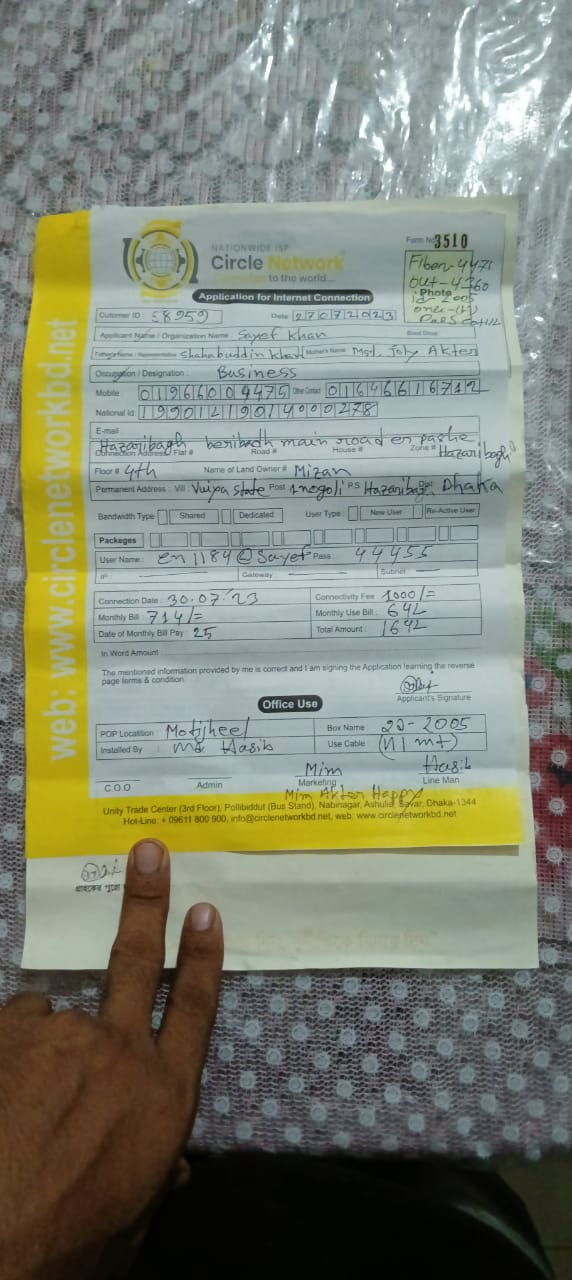 web: www.circlenetworkbd.net
NATIONWIDE ISP
Circle Network
to the world...
Form No 3510
Fiber-4471
out-4360
Photo
Application for Internet Connection
Cutomer ID : 58959 Date 27072023
Applicant Name / Organization Name : Sayef Khan Blood Group :
Father's Name / Representative : Shahabuddin khan Mother's Name : Mst. Joly Akter
Occupation / Designation : Business
Mobile 01966004475 Other Contact 01646616712
National Id: 19901219014000278
E-mail
Hazaribagh beribadh main road er pashe
Connection Address: Flat # Road # House # Zone # Hazaribagh
Floor # 4th Name of Land Owner # Mizan
Permanent Address : Vill : Post : P.S. Hazaribag Dist Dhaka
Bandwidth Type Shared Dedicated User Type : New User Re-Active User
Packages
User Name : en1184@Sayef Pass : 44455
IP Gateway Subnet
Connection Date : 30.07.23 Connectivity Fee : 1000/=
Monthly Bill : 714/= Monthly Use Bill : 642
Date of Monthly Bill Pay : 25 Total Amount : 1642
In Word Amount
The mentioned information provided by me is correct and I am signing the Application learning the reverse
page terms & condition.
Applicant's Signature
Office Use
POP Locatition : Motijheel Box Name : 20-2005
Installed By : Md Hasib Use Cable :
Mim Hasib
C.O.O Admin Marketing Line Man
Mim Akter Happy
Unity Trade Center (3rd Floor), Pollibiddut (Bus Stand), Nabinagar, Ashulia, Savar, Dhaka-1344
Hot-Line: + 09611 800 900, info@circlenetworkbd.net, web: www.circlenetworkbd.net
গ্রাহকের পুরো